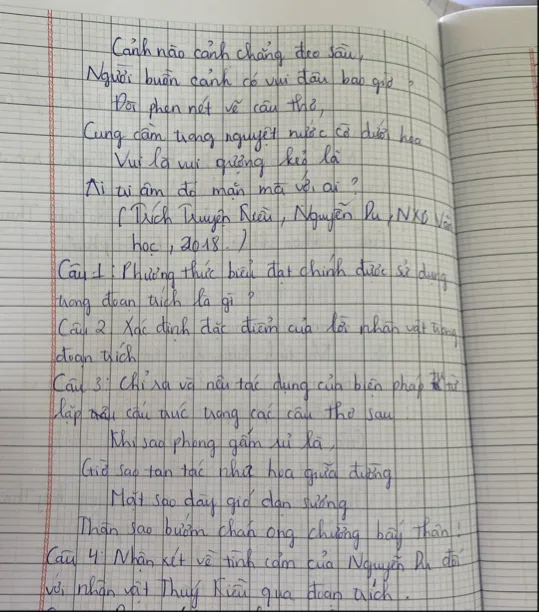 Cảnh nào cảnh chẳng đeo sầu,
Người buồn cảnh có vui đâu bao giờ ?
Đòi phen nét vẽ câu thơ,
Cung cầm trong nguyệt nước cờ dưới hoa
Vui là vui gượng kẻo là
Ai tri âm đó mặn mà với ai ?
( Trích Truyện Kiều, Nguyễn Du, NXB Văn
học, 2018. )
Câu 1 : Phương thức biểu đạt chính được sử dụng
trong đoạn trích là gì ?
Câu 2. Xác định đặc điểm của lời nhân vật trong
đoạn trích
Câu 3: Chỉ ra và nêu tác dụng của biện pháp tu từ
lặp cấu trúc trong các câu thơ sau
Khi sao phong gấm rủ là,
Giờ sao tan tác như hoa giữa đường
Mặt sao dày gió dạn sương
Thân sao bướm chán ong chường bấy thân !
Câu 4: Nhận xét về tình cảm của Nguyễn Du đối
với nhân vật Thuý Kiều qua đoạn trích.